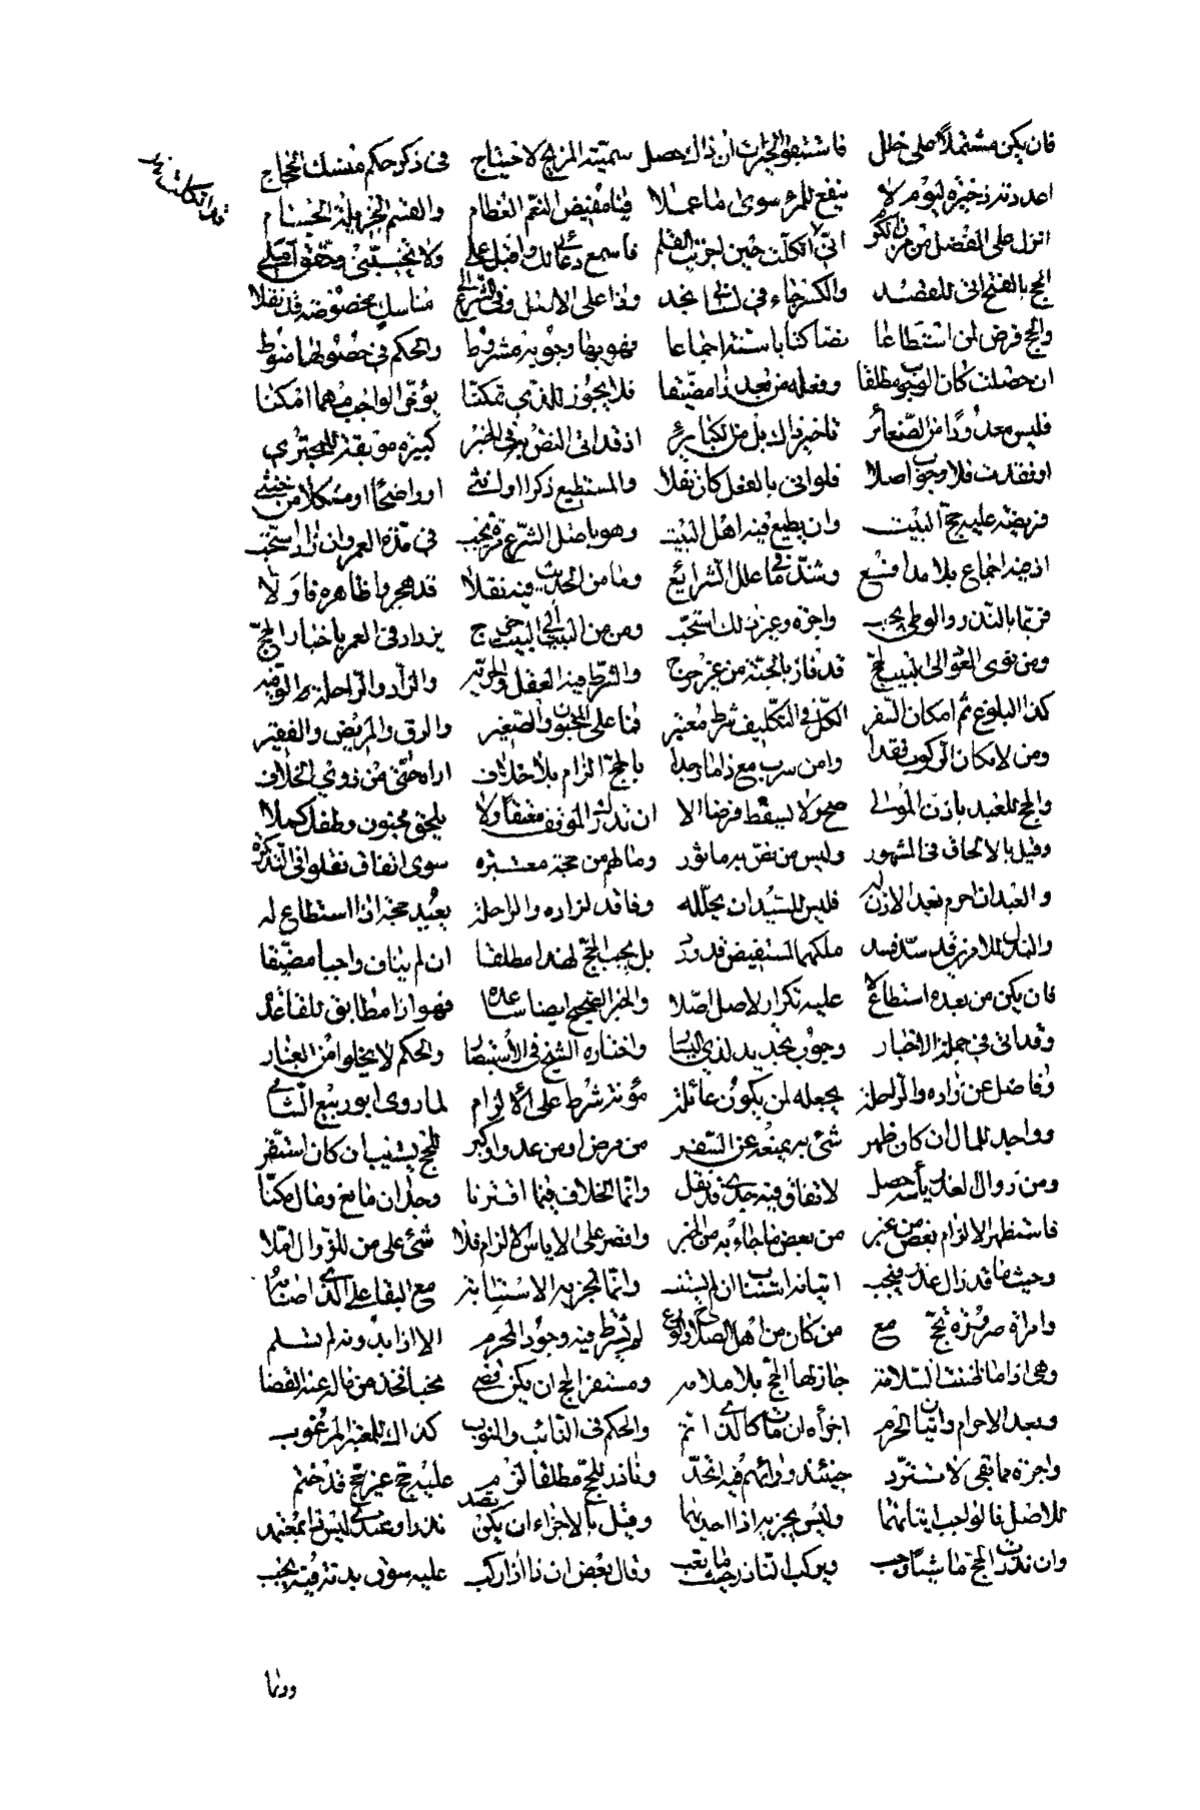 فان يكن مشتملا على خلل فاستبقوا الخيرات ان ذاك حصل سميته المزيل لاحتياج في ذكر حكم منسك الحجاج
اعددته ذخيرة ليوم لا ينفع للمرء سوى ما عملا فيا مفيض النعم العظام والقسم الجزيلة الحسام
انزل على الفضل من اني اتكلت حين اجريت القلم فاسمع دعائي لك واقبل عملي ولا تخيبني وحقق املي
الحج بالفتح اتى للقصد والكسر جاء في لسان نجد وذا على الاصل وفي الشرع الى مناسك مخصوصة قد نقلا
والحج فرض لمن استطاعا نصا كتابا سنة اجماعا فهو بها وجوبه مشروط والحكم في حصولها منوط
ان حصلت كان الوجوب مطلقا وفعله من بعد ذا مضيقا فلا يجوز للذي تمكنا يؤخر الواجب مهما امكنا
فليس معدودا من الصغائر تاخيره بل من الكبائر اذ قد اتى النص به في الخبر كبيرة موبقة للمجتري
او فقدت فلا وجوب اصلا فلو اتى بالفعل كان نفلا والمستطيع ذكرا او انثى او واضحا او مشكلا من خنثى
فريضة عليه حج البيت وان يطيع فيه اهل البيت وهو باصل الشرع مرة يجب في مدة العمر وان زاد استحب
اذ فيه اجماع بلا مدافع وشذ ما في علل الشرائع وما من الحديث فيه نقلا قد هجروا ظاهره فاولا
فربما بالنذر والوطي يجب واجره وغير ذلك استحب ومن من البيت الى البيت خرج يزداد في العمر باخبار الحج
ومن نوى العود الى البيت لحج قد فاز بالجنة من غير حرج والشرط فيه العقل والحريه والزاد والراحلة الوفيه
كذا البلوغ ثم امكان السفر الكل في التكليف شرط معتبر فما على المجنون والصغير والرق والمريض والفقير
ومن لامكان الركوب فقدا وامن سرب مع ذا ما وجدا بالحج الزام بلا خلاف اراه حتى من ذوي الخلاف
والحج للعبد باذن المولى صح ولا يسقط فرضا الا ان تدرك الموقف معتقا ولا يلحق مجنون وطفل كملا
وقيل بالالحاق في المشهور وليس من نص به ماثور وما لهم من حجة معتبره سوى اتفاق نقلوا في التذكره
والعبد ان احرم بعد الاذن له فليس للسيد ان يحلله وفاقد لزاده والراحلة يعيد حجه اذا استطاع له
والبذل للامرين قد سد فسد ملكهما المستفيض قد ورد بل يجب الحج لهذا مطلقا ان لم يناف واجبا مضيقا
فان يكن من بعده استطاعا عليه تكرار لاصل اصلا والخبر الصحيح ايضا ساعده فهو اذا مطابق للقاعده
وقد اتى في جملة الاخبار وجوب تجديد لذي اليسار واختاره الشيخ في الاستبصار والحكم لا يخلو من العثار
وفاضل عن زاده والراحلة يجعله لمن يكون عائله مؤنة شرط على الالزام لما روى ابو ربيع الشامي
وواجد للمال ان كان ظهر شيء به يمنعه عن السفر من مرض او من عدو او كبر للحج يستنيب ان كان استقر
ومن زوال العذر يأسه حصل لاتفاق فيه جدي قد نقل وانما الخلاف فيما افترنا وجدان مانع وما لمكنا
فاستظهر الالزام بعض من غبر من بعض ما جاء به من الخبر واقصر على الاياس الالزام فلا شيء على من للزوال املا
وحيثما قد زال عذر فيجب اتيانه استناب ان لم يستنب وانما تجزيه الاستنابة مع البقاء على الذي اصابه
وامراة صرورة تحج مع من كان من اهل الصلاح والورع لم تشترط فيه وجود المحرم الا اذا بدونه لم تسلم
وهي اذا ما ظنت السلامه جاز لها الحج بلا ملامه ومستقر الحج ان يكن قضى نحبا فخذ من ماله عنه القضا
وبعد الاحرام واتيان الحرم اجزأه ان مات كالذي اتم والحكم في النائب والمنوب كذاك للمعتبر المرغوب
واجرة مما بقي لا تسترد حينئذ ورائهم فيه اتحد وناذر للحج مطلقا لزم عليه حج غير حج قد ختم
للاصل فالواجب اتيانهما وليس يجزيه اذا احديهما وقيل بالاجزاء ان يكن قصد نذرا وعندي ليس ذا بمعتمد
وان نذرت الحج ماشيا وجب ويركب الناذر حيث ما تعب وقال بعض ان ذا اذا ركب عليه سوق بدنة فيه يجب
وربما